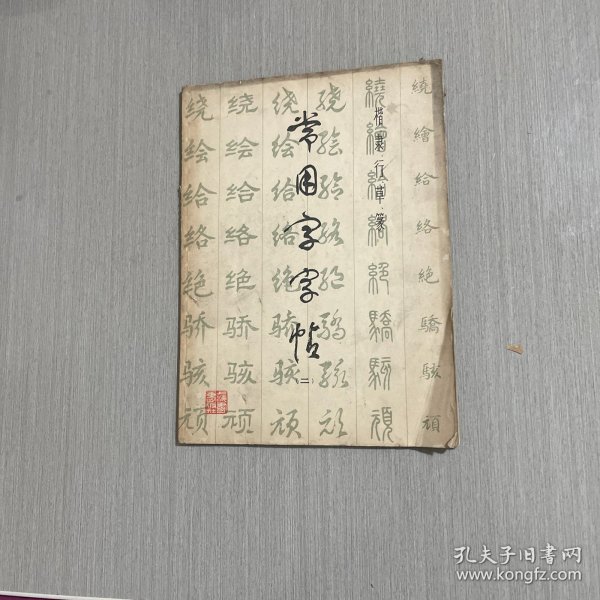 楷·隶·行·草·篆
常用字字帖
(二)
繞繪給絡絕驕駭頑
绕绘给络绝骄骇顽
绕绘给络绝骄骇顽
绕绘给络绝骄骇顽
上海書畫社
孔夫子旧书网
www.kongfz.com